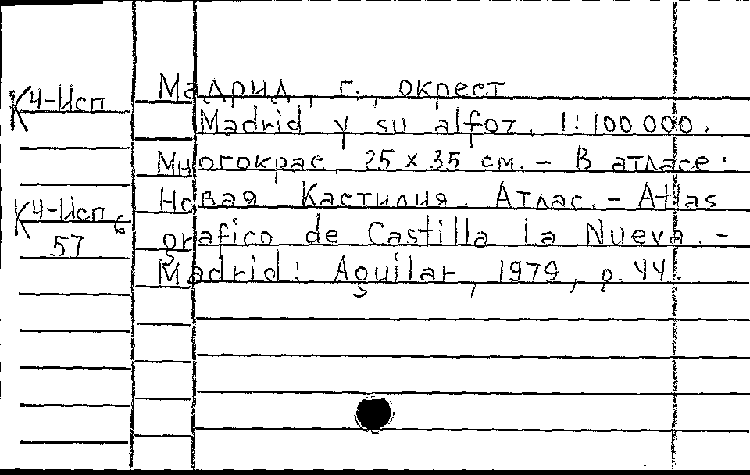 Мадрид, г., окрест
К4-Исп
Madrid y su alfoz. 1:100 000.
Многокрас. 25 x 35 см. - В атласе:
Новая Кастилия. Атлас. - Atlas
К4-Исп б
57
grafico de Castilla la Nueva. -
Madrid: Aguilar, 1979, p. 44.